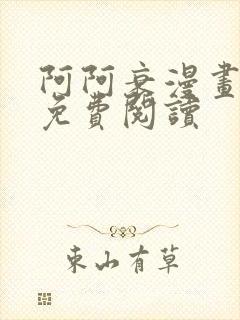 阿阿衰漫畫
免費閱讀
東山有草